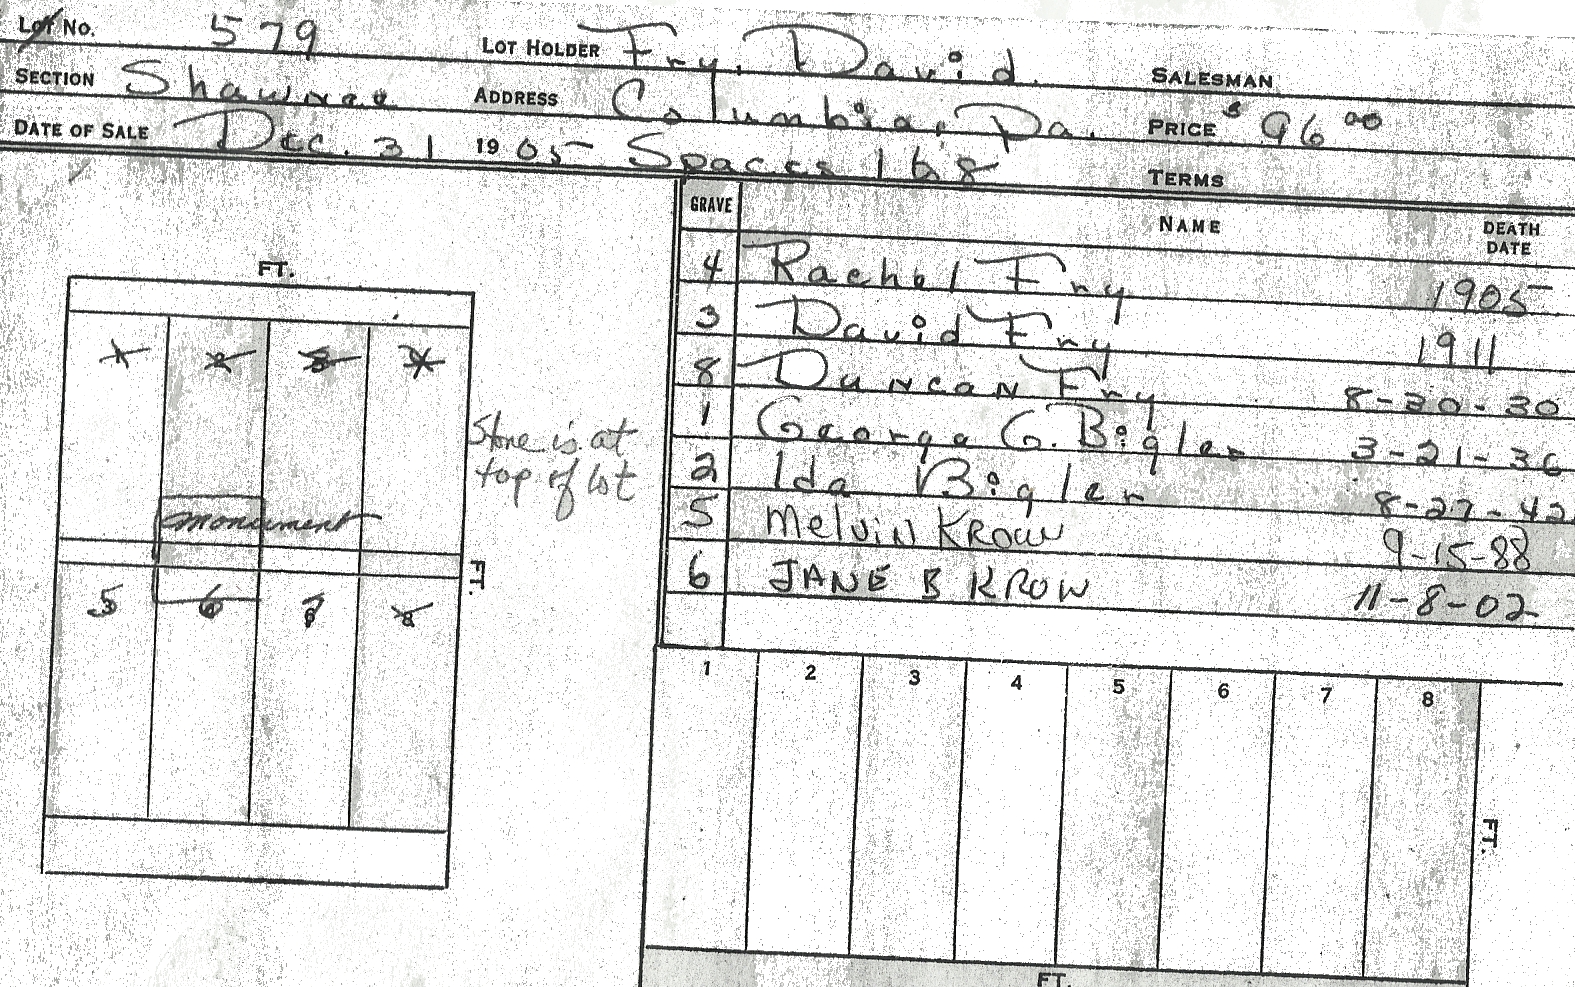 Lot No. 579 LOT HOLDER Fry, David SALESMAN
SECTION Shawnee ADDRESS Columbia, Pa. PRICE $ 96 00
DATE OF SALE Dec. 31 1905 Spaces 1 to 8 TERMS
GRAVE NAME DEATH DATE
4 Rachel Fry 1905
3 David Fry 1911
8 Duncan Fry 8-20-30
1 George G. Bigler 3-21-36
2 Ida Bigler 8-27-42
5 Melvin Krow 9-15-88
6 JANE B KROW 11-8-02
FT.
1 2 3 4
Stone is at
top of lot
monument
FT.
5 6 7 8
1 2 3 4 5 6 7 8
FT.
FT.